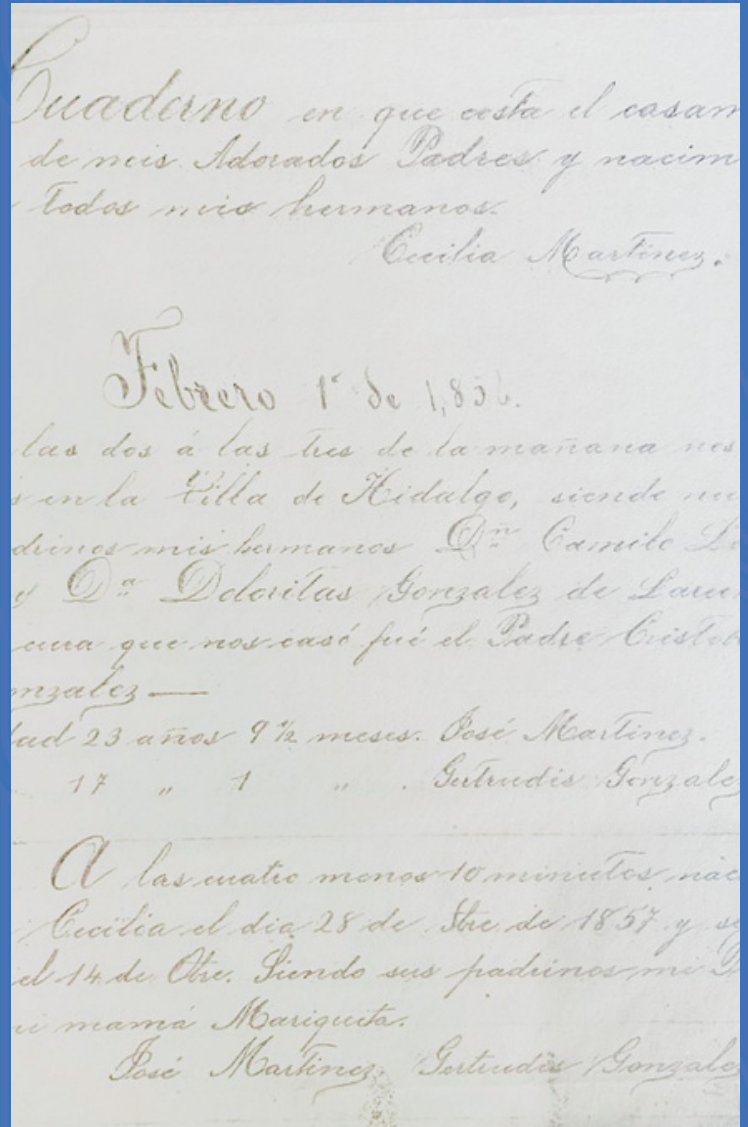 Cuaderno en que costa el casam
de mis Adorados Padres y nacim
todos mis hermanos.
Cecilia Martinez.
Febrero 1º de 1,856.
las dos á las tres de la mañana nos
en la Villa de Hidalgo, siendo nu
drinos mis hermanos Dn Camilo
y Da Doloritas Gonzalez de
cura que nos casó fué el Padre Cristob
nzalez —
dad 23 años 9 ½ meses. José Martinez.
17 " 1 " . Gertrudis Gonzalez
A las cuatro menos 10 minutos nac
Cecilia el dia 28 de Stre de 1857 y se
el 14 de Obre. Siendo sus padrinos mi
mi mamá Mariquita.
José Martinez Gertrudis Gonzalez